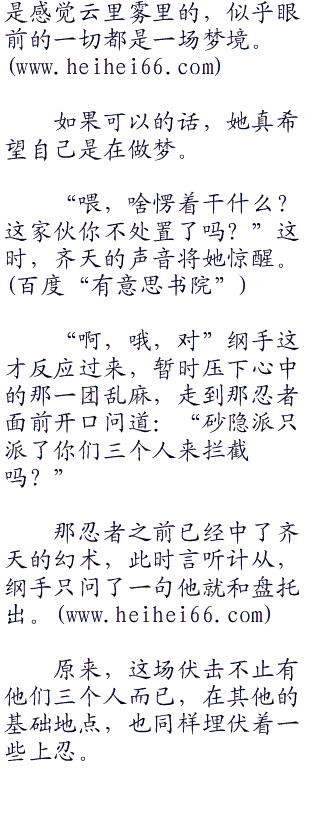 是感觉云里雾里的，似乎眼
前的一切都是一场梦境。
(www.heihei66.com)
如果可以的话，她真希
望自己是在做梦。
“喂，啥愣着干什么？
这家伙你不处置了吗？”这
时，齐天的声音将她惊醒。
(百度“有意思书院”)
“啊，哦，对”纲手这
才反应过来，暂时压下心中
的那一团乱麻，走到那忍者
面前开口问道：“砂隐派只
派了你们三个人来拦截
吗？”
那忍者之前已经中了齐
天的幻术，此时言听计从，
纲手只问了一句他就和盘托
出。(www.heihei66.com)
原来，这场伏击不止有
他们三个人而已，在其他的
基础地点，也同样埋伏着一
些上忍。